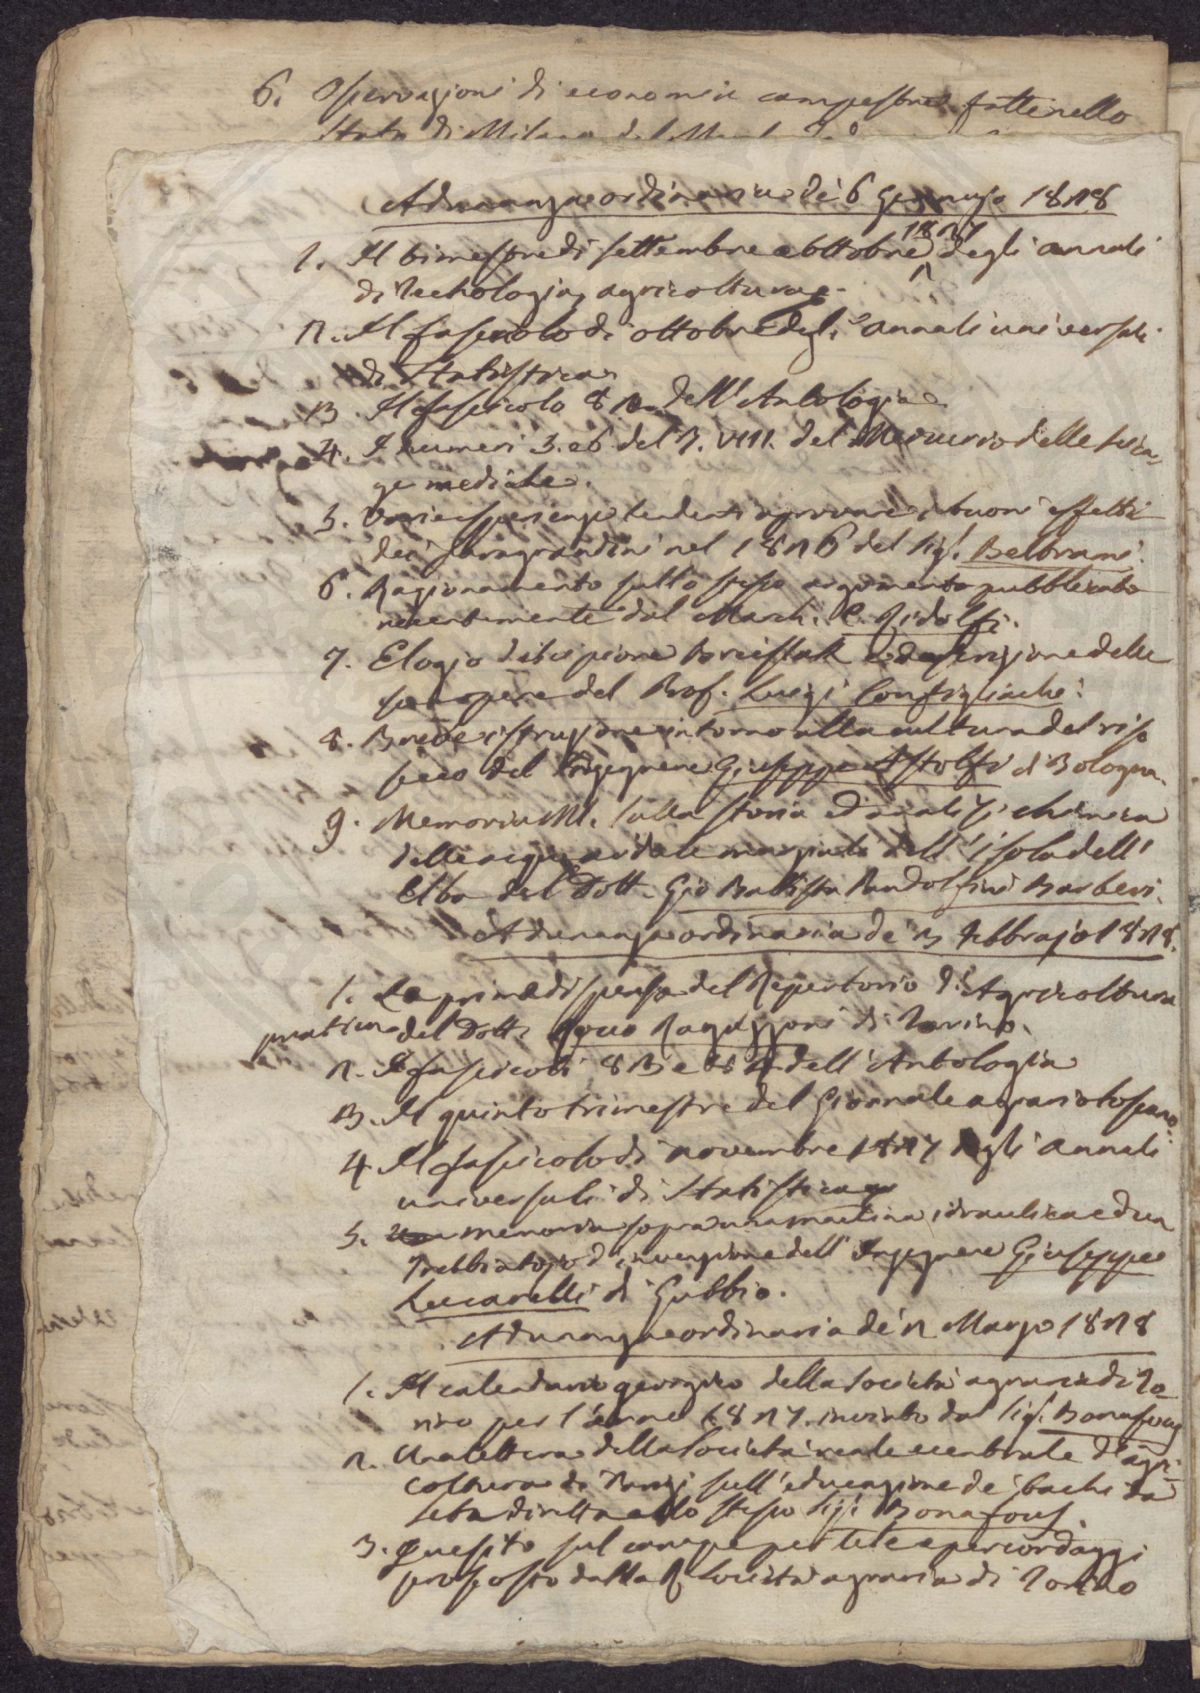 6. Osservazioni di economia campestre fatte nello
Stato di Milano
Adunanza ordinaria de' 6 Gennajo 1828
1827
1. Il bimestre di settembre e ottobre degli annali
di Technologia, agricoltura &c.
2. Il fascicolo di ottobre degli annali universali
di Statistica
3. Il fascicolo 82 dell'Antologia
4. I numeri 5. e 6 del T. VIII. del Mercurio delle scien-
ze mediche.
5. Varie esperienze tendenti a provare i buoni effetti
dei paragrandini nel 1826 del Sig. Beltrami.
6. Ragionamento sullo stesso argomento pubblicato
recentemente dal March. C. Ridolfi.
7. Elogio di Scipione Breislak e descrizione delle
sue opere del Prof. Luigi Configliachi.
8. Breve istruzione intorno alla cultura del riso
secco del Ingegnere Giuseppe Astolfi di Bologna.
9. Memoria MS. sulla storia ed analisi chimica
delle acque acidule marziali dell'isola dell'
Elba del Dott. Gio Battista Pandolfini Barberi.
Adunanza ordinaria de' 3 Febbrajo 1828.
1. La prima dispensa del Repertorio d'Agricoltura
pratica del Dott. Rocco Ragazzoni di Torino.
2. I fascicoli 83 e 84 dell'Antologia
3. Il quinto trimestre del Giornale agrario toscano.
4 Il fascicolo di novembre 1827 degli annali
universali di Statistica
5. memoria sopra una macchina idraulica e d'un
Trebbiatojo d'invenzione dell'Ingegnere Giuseppe
Lucarelli di Gubbio.
Adunanza ordinaria de' 2 Marzo 1828
1. Il calendario georgico della Società agraria di To-
rino per l'anno 1827. inviato dal Sig. Bonafous
2. Una lettera della Società reale e centrale d'agri-
coltura di Parigi sull'educazione de' bachi da
seta diretta allo stesso Sig. Bonafous.
3. Quesito sul canape per tele e per cordaggi
proposto dalla R. Società agraria di Torino